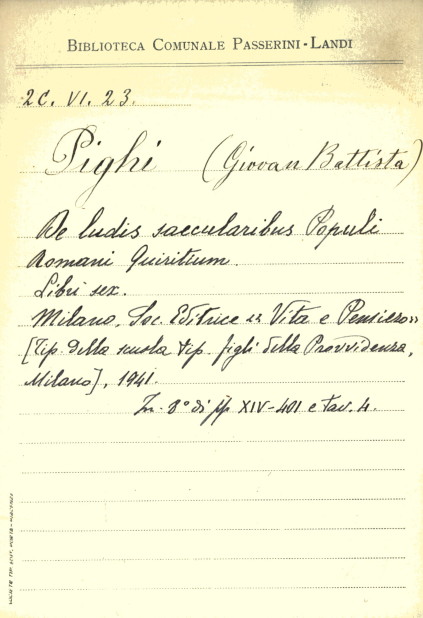 BIBLIOTECA COMUNALE PASSERINI-LANDI
2C. VI. 23.
Pighi (Giovan Battista)
De ludis saecularibus Populi
Romani Quiritium.
Libri sex.
Milano, Soc. Editrice "Vita e Pensiero"
[Tip. della scuola tip. figli della Provvidenza,
Milano], 1941.
In 8° di pp XIV-401 e tav. 4.